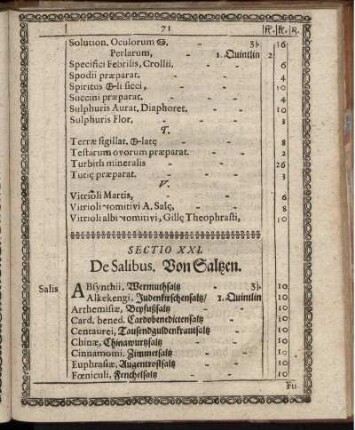 71 fl. ß. ₰.
Solution. Oculorum 🜔. - - 3j. 16
Perlarum, - 1. Quintlin 2
Specifici Febrilis, Crollii, - - 6
Spodii præparat. - - - 4
Spiritus li sicci, - - - 10
Succini præparat. - - - 4
Sulphuris Aurat. Diaphoret. - - 10
Sulphuris Flor. - - - 3
T.
Terræ sigillat. latę - - 8
Testarum ovorum præparat. - - 2
Turbith mineralis - - - 26
Tutię præparat. - - - 3
V.
Vitrioli Martis, - - - 6
Vitrioli vomitivi A, Salę, - - 8
Vitrioli albi vomitivi, Gillę Theophrasti, 10
SECTIO XXI.
De Salibus. Von Saltzen.
Salis ABsynthii. Wermuthsaltz - 3j. 10
Alkekengi. Judenkirschensaltz/ 1. Quintlin 10
Arthemisiæ, Beyfußsaltz - - 10
Card. bened. Cardobenedictensaltz - 10
Centaurei, Tausendguldenkrautsaltz 10
Chinæ, Chinawurtzsaltz - - 10
Cinnamomi. Zimmetsaltz - - 10
Euphrasiæ, Augentrostsaltz - - 10
Fœniculi, Fenchelsaltz - - 10
Fu-